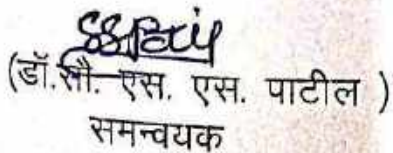 (डॉ.सौ. एस. एस. पाटील )
समन्वयक